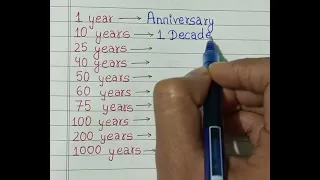 1 year → Anniversary
10 years → 1 Decade
25 years →
40 years →
50 years →
60 years →
75 years →
100 years →
200 years →
1000 years →